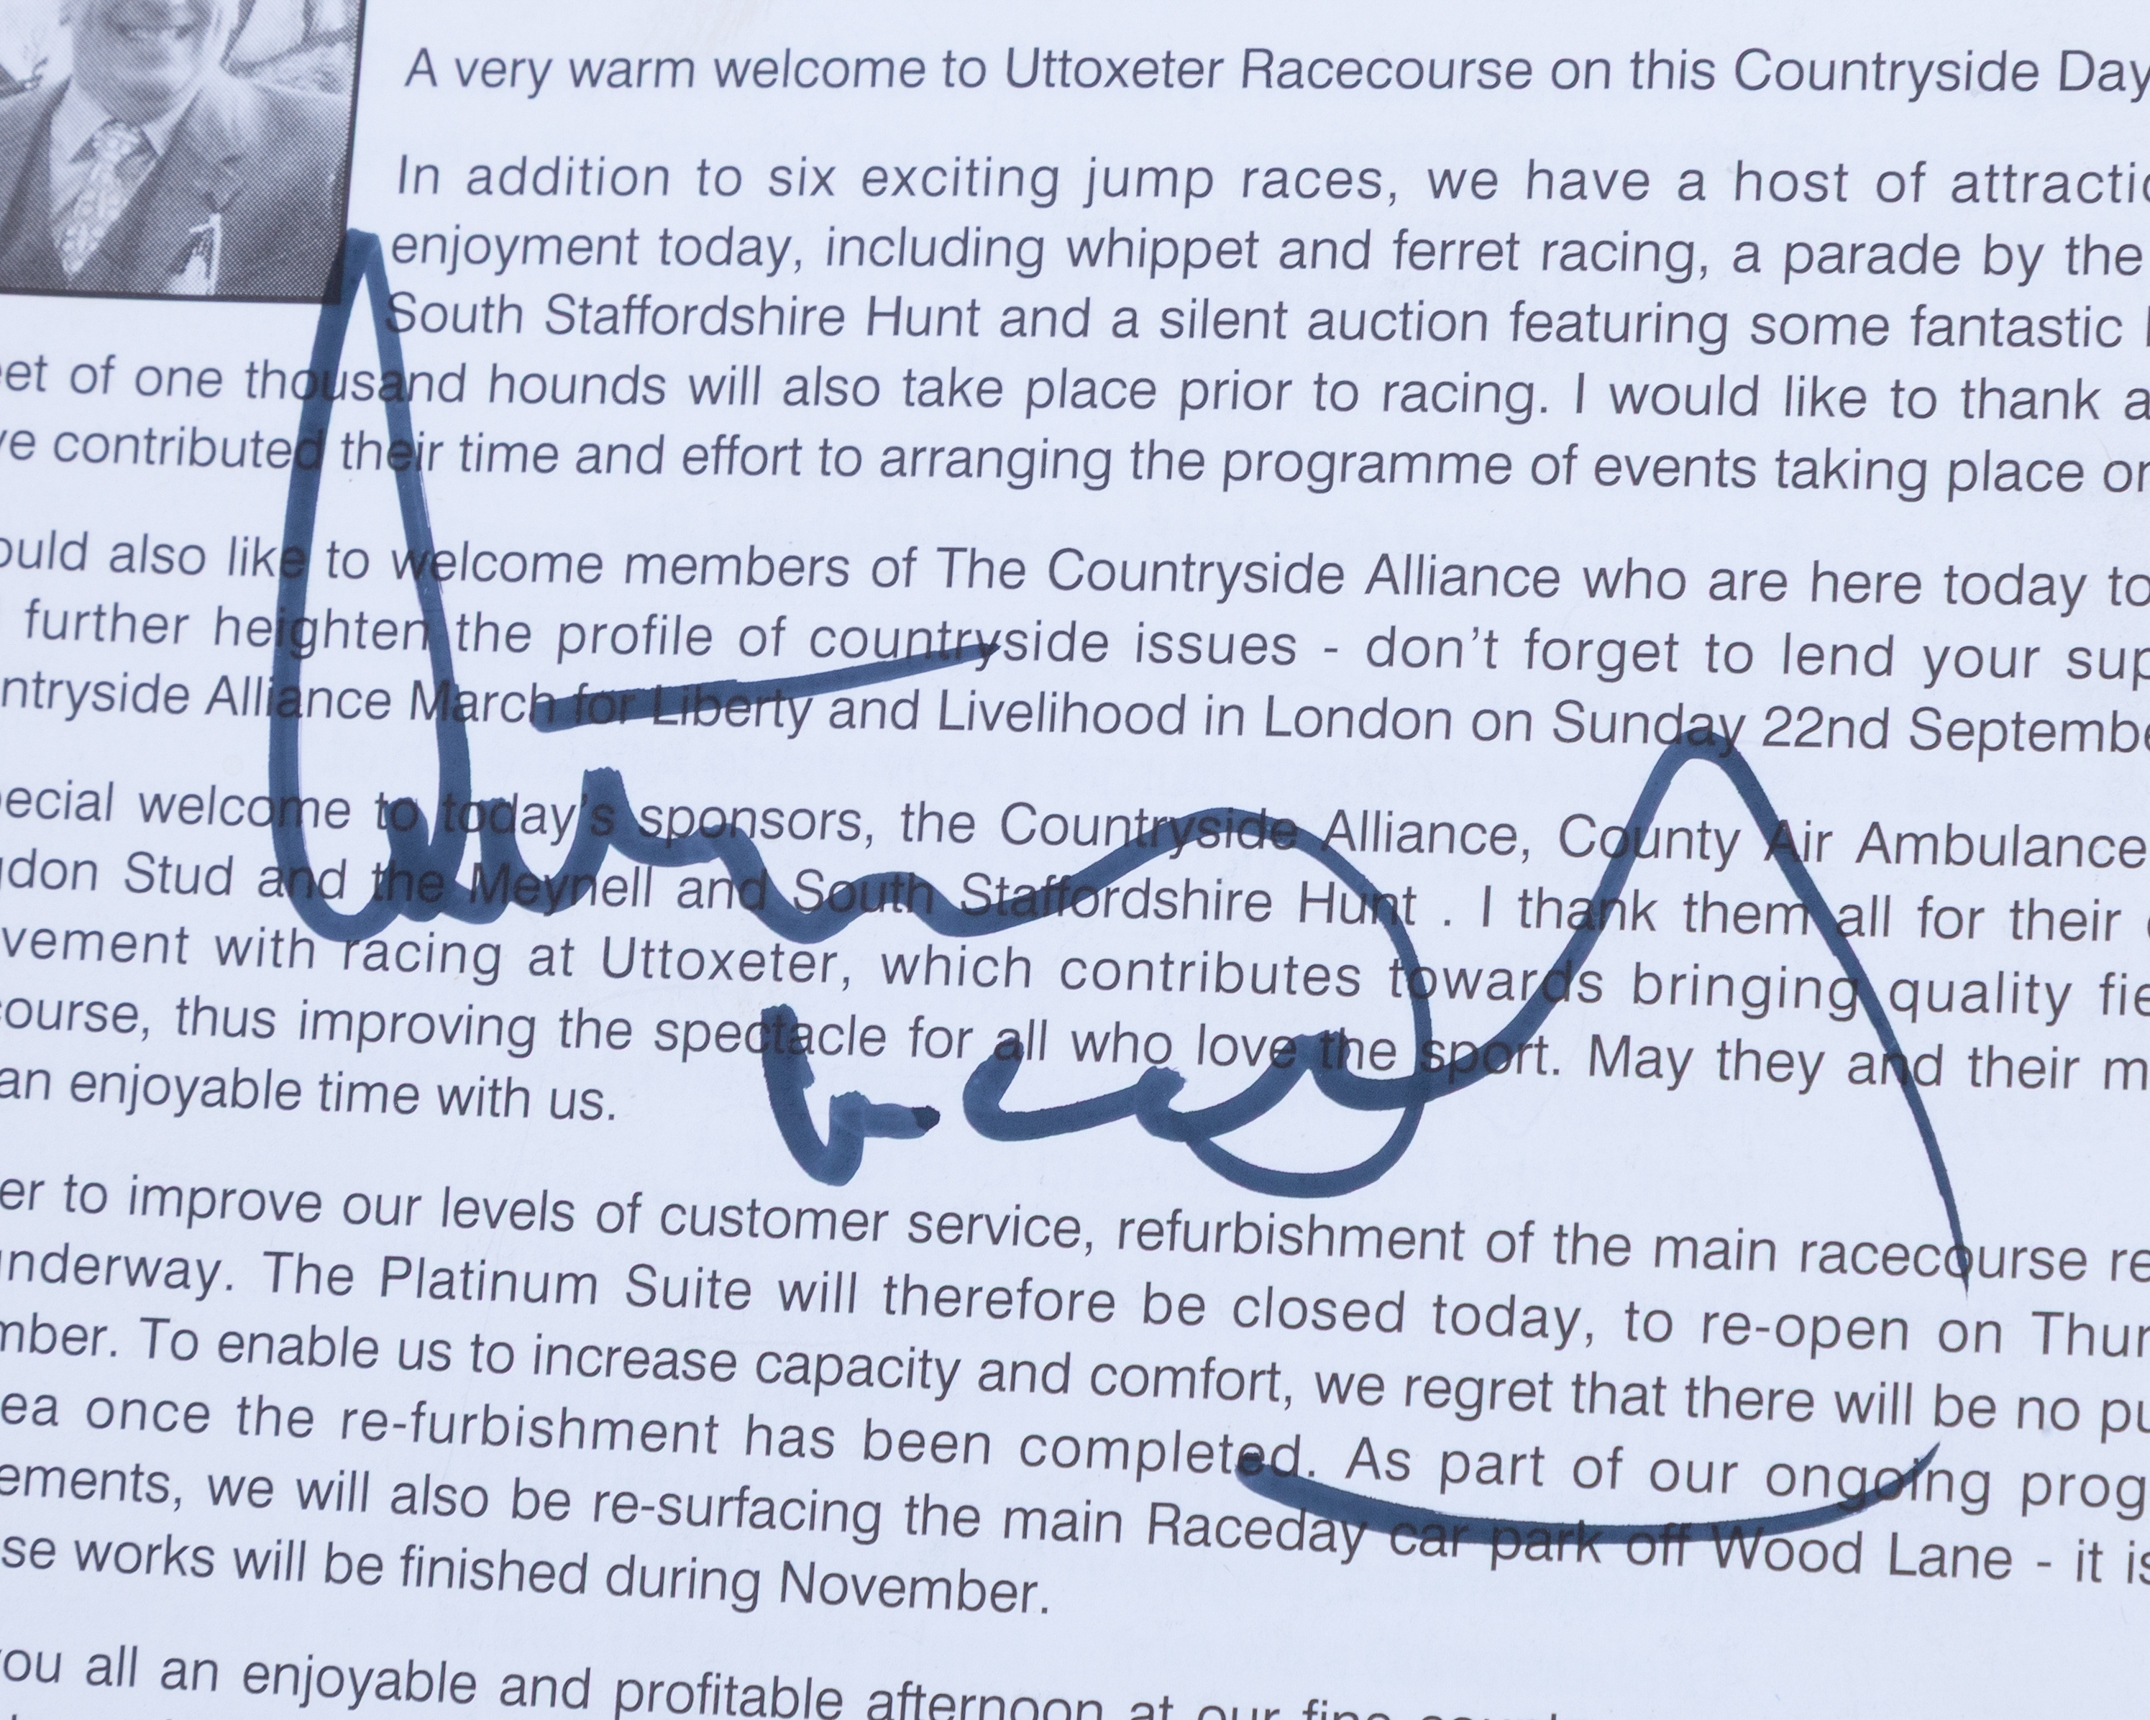 A very warm welcome to Uttoxeter Racecourse on this Countryside Day
In addition to six exciting jump races, we have a host of
enjoyment today, including whippet and ferret racing, a parade by the
South Staffordshire Hunt and a silent auction featuring some fantastic
of one thousand hounds will also take place prior to racing. I would like to thank
contributed their time and effort to arranging the programme of events taking place
also like to welcome members of The Countryside Alliance who are here today to
further heighten the profile of countryside issues - don't forget to lend your
Alliance March for Liberty and Livelihood in London on Sunday 22nd
welcome to today's sponsors, the Countryside Alliance, County Air Ambulance
Stud and the Meynell and South Staffordshire Hunt . I thank them all for their
with racing at Uttoxeter, which contributes towards bringing quality
thus improving the spectacle for all who love the sport. May they and their
an enjoyable time with us.
to improve our levels of customer service, refurbishment of the main racecourse
The Platinum Suite will therefore be closed today, to re-open on
To enable us to increase capacity and comfort, we regret that there will be no
once the re-furbishment has been completed. As part of our ongoing
we will also be re-surfacing the main Raceday car park off Wood Lane - it is
works will be finished during November.
all an enjoyable and profitable afternoon at our fine